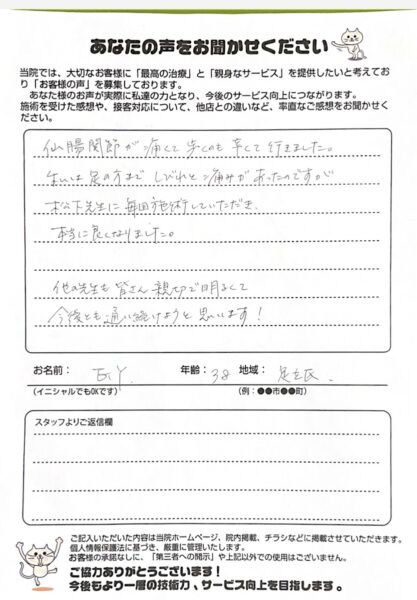 あなたの声をお聞かせください
当院では、大切なお客様に「最高の治療」と「親身なサービス」を提供したいと考えており「お客様の声」を募集しております。
あなた様のお声が実際に私達の力となり、今後のサービス向上につながります。
施術を受けた感想や、接客対応について、他店との違いなど、率直なご感想をお聞かせください。
仙腸関節が痛くて歩くのも辛くて行きました。
足の方まで しびれと痛みがあったのですが
松下先生に毎回施術していただき、
本当に良くなりました。
他の先生も 皆さん親切で明るくて
今後とも通い続けようと思います!
お名前: Y. 年齢: 38 地域: 足立区.
(イニシャルでもOKです) (例:●●市●●町)
スタッフよりご返信欄
ご記入いただいた内容は当院ホームページ、院内掲載、チラシなどに掲載させていただきます。
個人情報保護法に基づき、厳重に管理いたします。
お客様の承諾なしに、「第三者への開示」や上記以外での使用はございません。
ご協力ありがとうございます!
今後もより一層の技術力、サービス向上を目指します。